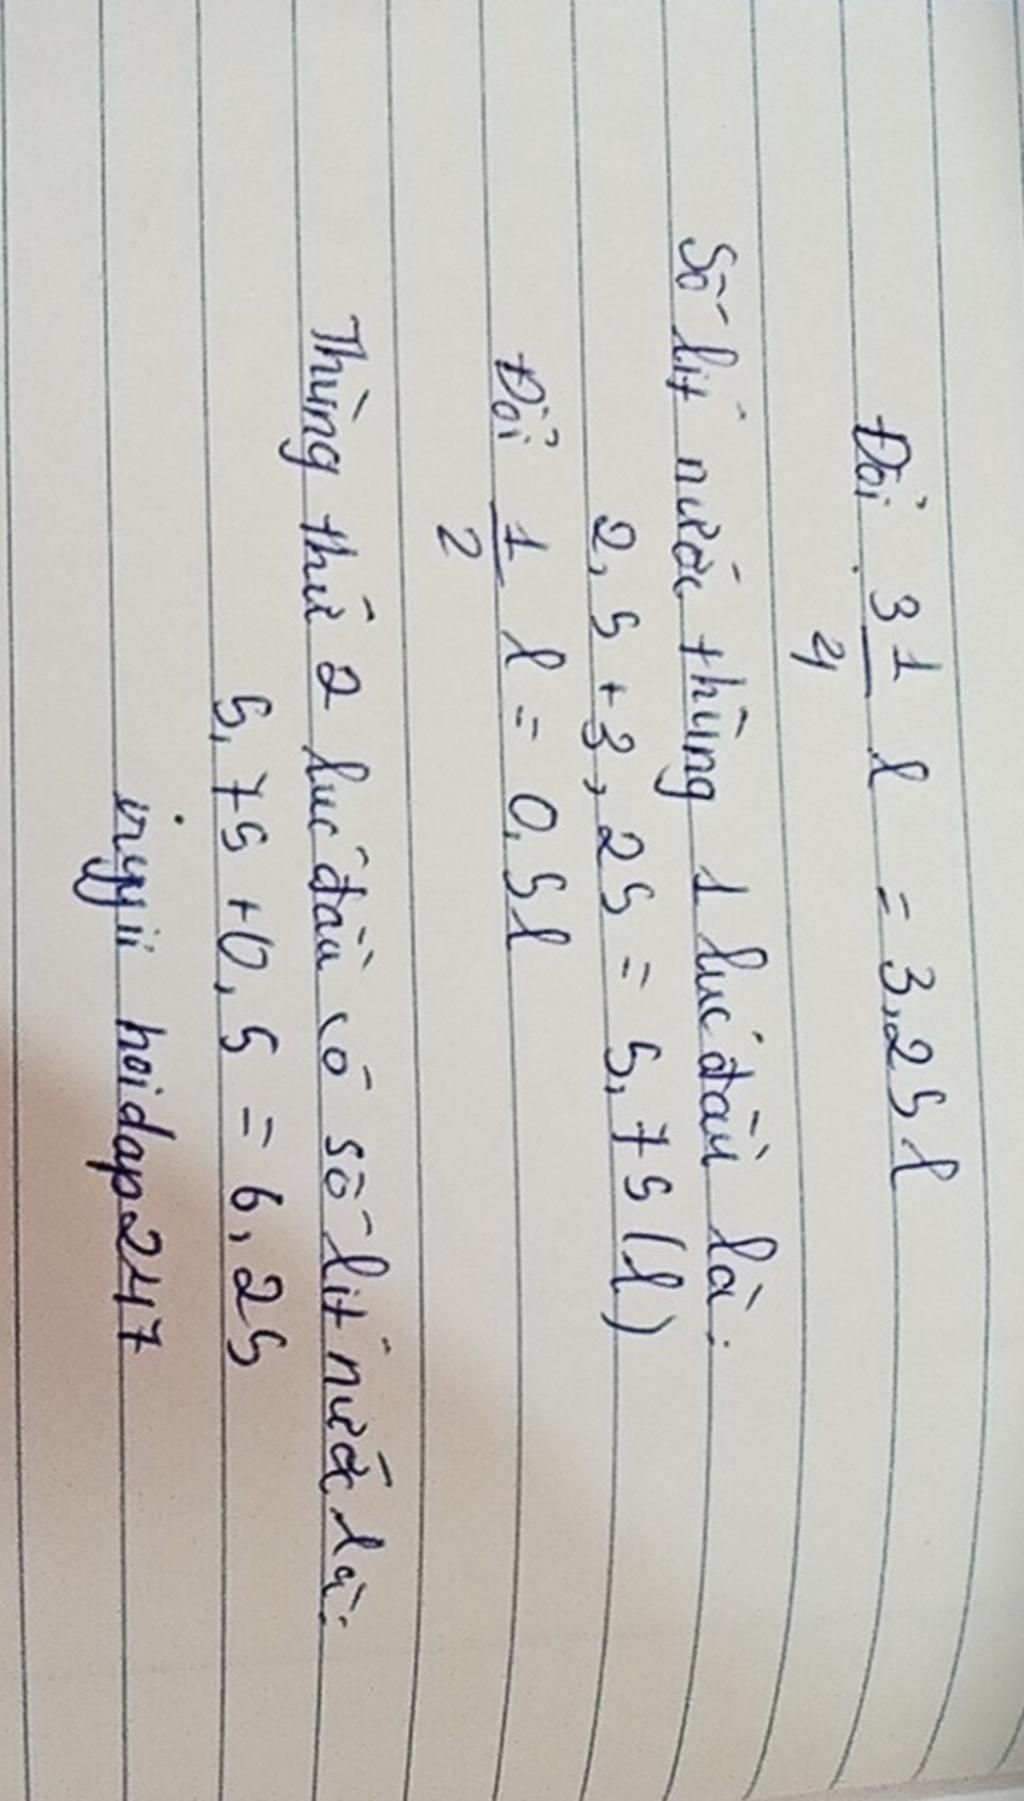 Đổi 3 1/4 l = 3,25 l
Số lít nước thùng 1 lúc đầu là:
2,5 + 3,25 = 5,75 (l)
Đổi 1/2 l = 0,5 l
Thùng thứ 2 lúc đầu có số lít nước là:
5,75 + 0,5 = 6,25
hoidap247